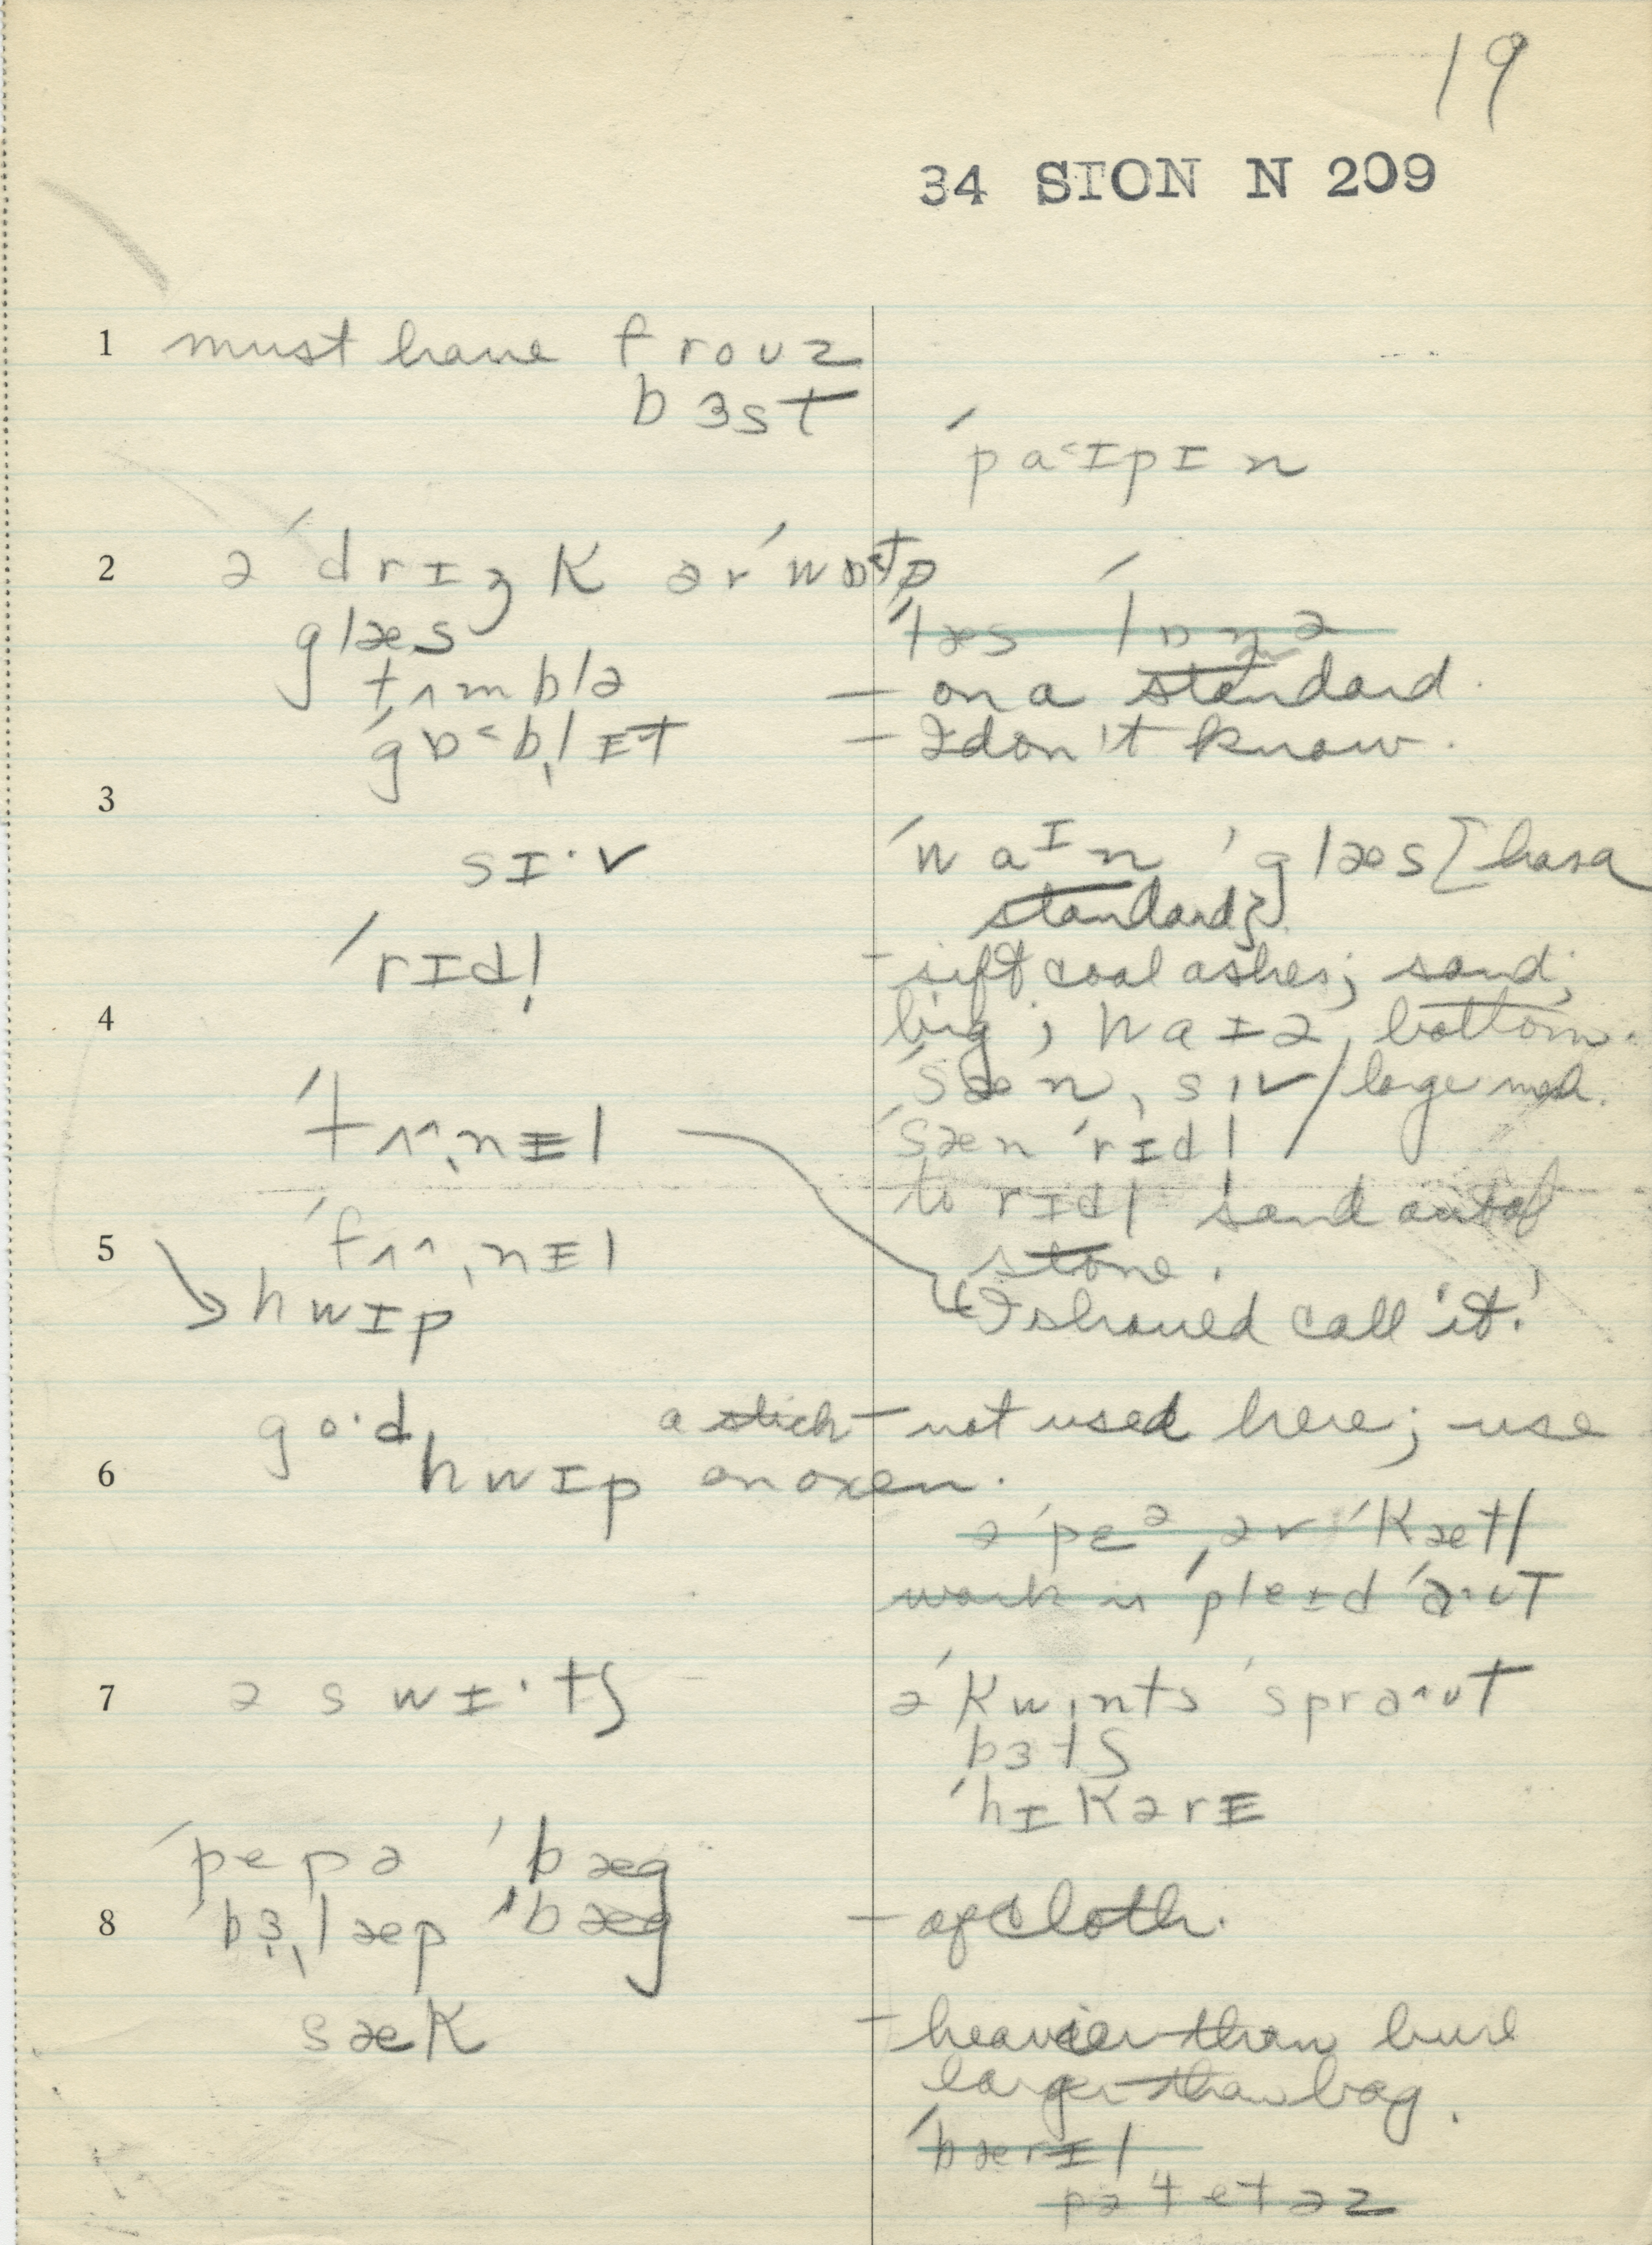 19
34 SION N 209
1 must have frouz
bɜst
ˈpa˂ɪpɪn
2 ə ˈdrɪŋk ər ˈwɒ˂tə
glæs
tʌmblə — on a standard.
ˈgɒ˂bˌlɪt — I don't know.
3
sɪ·v ˈwaɪn ˈglæs [has a
standard].
ˈrɪdl̩ - sift coal ashes; sand;
4 big; waɪə bottom.
ˈsænˌsɪv / large mesh.
ˈtʌ^ˌnɨl ˈsæn ˈrɪdl
to rɪdl sand out of
stone.
ˈfʌ^ˌnɨl
5 hwɪp "I should call it."
go·d a stick — not used here; use
6 hwɪp on oxen.
ə ˈpɛə ər ˈkætl
work is ˈpleɪd ˈaʊt
7 ə swɪ·tʃ ə ˈkwɪnts ˈspra^ʊt
bɜtʃ
ˈhɪkərɨ
ˈpepə ˈbæg
8 ˈbɜˌlæp ˈbæg — of cloth.
sæk - heavier than burl
larger than bag.
ˈbærɨl